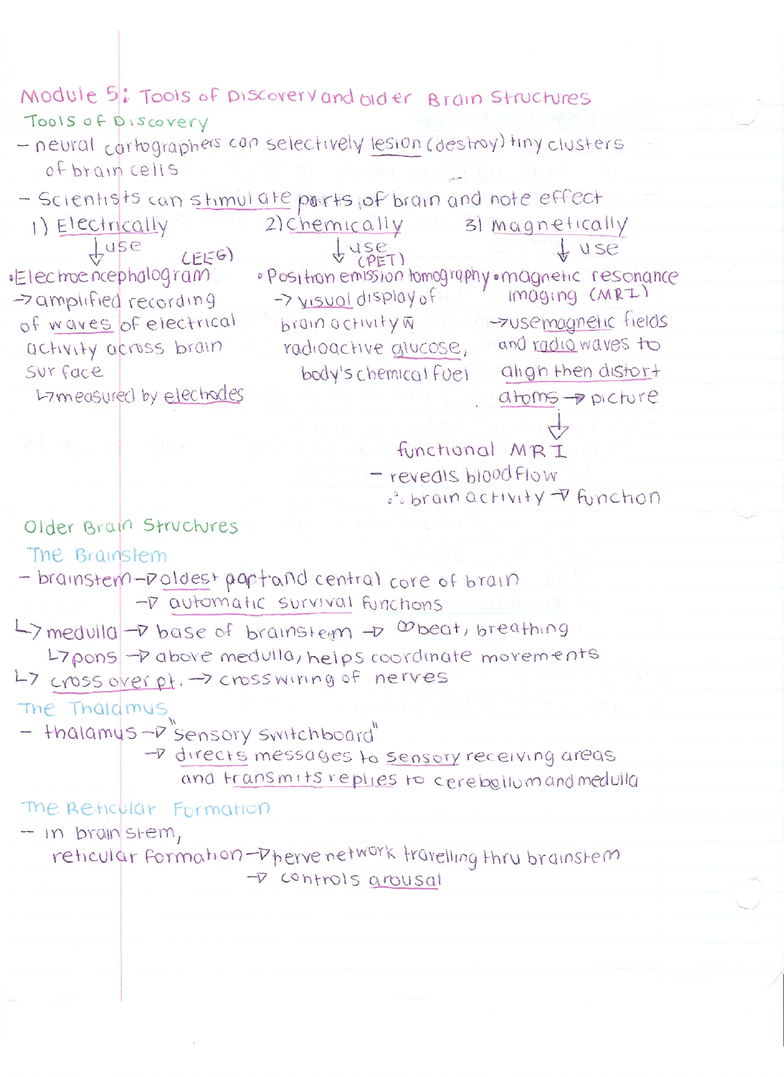 Module 5: Tools of Discovery and older Brain Structures
Tools of Discovery
- neural cartographers can selectively lesion (destroy) tiny clusters
of brain cells
- Scientists can stimulate parts of brain and note effect
1) Electrically 2) Chemically 3) magnetically
↓ use ↓ use ↓ use
(EEG) (PET)
•Electroencephalogram •Position emission tomography •magnetic resonance
imaging (MRI)
→ amplified recording → visual display of
of waves of electrical brain activity w̄ → use magnetic fields
activity across brain radioactive glucose, and radio waves to
surface body's chemical fuel align then distort
↳ measured by electrodes atoms → picture
↓
functional MRI
- reveals bloodflow
∴ brain activity → function
Older Brain Structures
The Brainstem
- brainstem → oldest part and central core of brain
→ automatic survival functions
↳ medulla → base of brainstem → ♡beat, breathing
↳ pons → above medulla, helps coordinate movements
↳ cross over pt. → cross wiring of nerves
The Thalamus
- thalamus → "sensory switchboard"
→ directs messages to sensory receiving areas
and transmits replies to cerebellum and medulla
The Reticular Formation
- in brain stem,
reticular formation → nerve network travelling thru brainstem
→ controls arousal